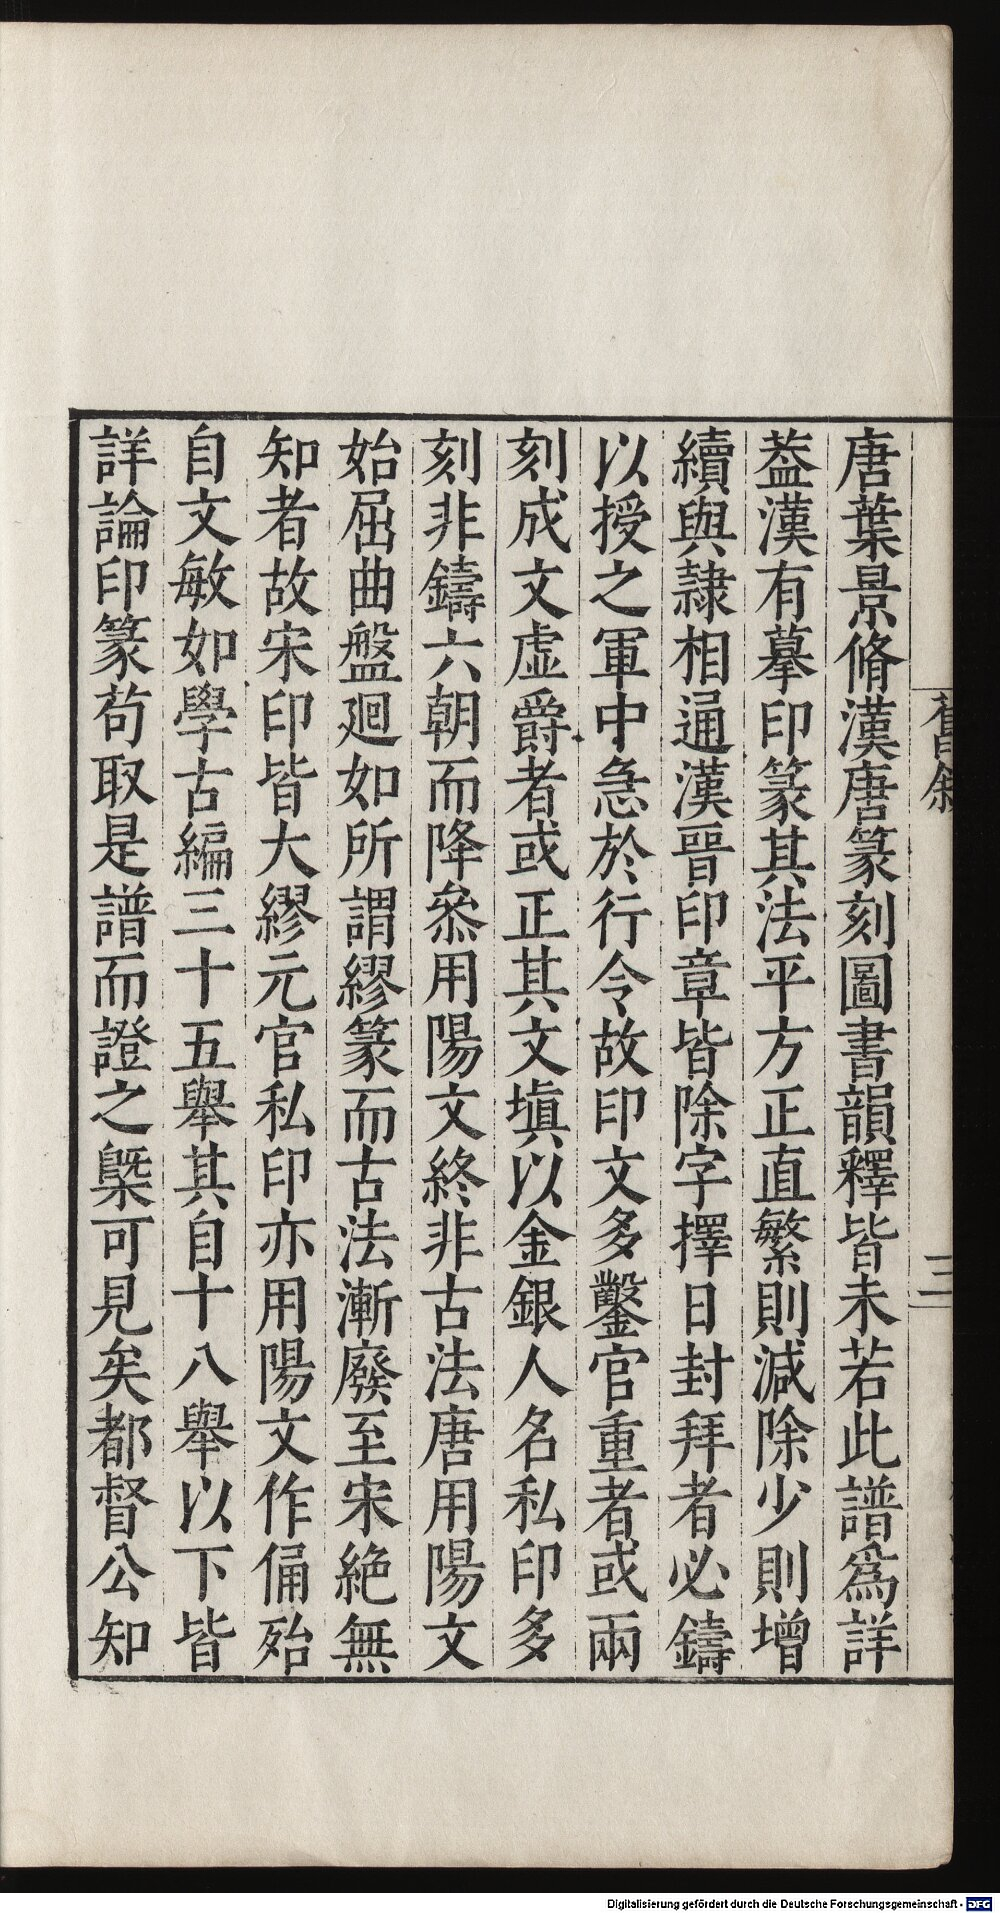 唐葉景脩漢唐篆刻圖書韻釋皆未若此譜爲詳
葢漢有摹印篆其法平方正直繁則減除少則增
續與隷相通漢晉印章皆除字擇日封拜者必鑄
以授之軍中急於行令故印文多鑿官重者或兩
刻成文虛爵者或正其文塡以金銀人名私印多
刻非鑄六朝而降叅用陽文終非古法唐用陽文
始屈曲盤廻如所謂繆篆而古法漸廢至宋絶無
知者故宋印皆大繆元官私印亦用陽文作俑殆
自文敏如學古編三十五舉其自十八舉以下皆
詳論印篆茍取是譜而證之槩可見矣都督公知
舊敘
三
Digitalisierung gefördert durch die Deutsche Forschungsgemeinschaft - DFG